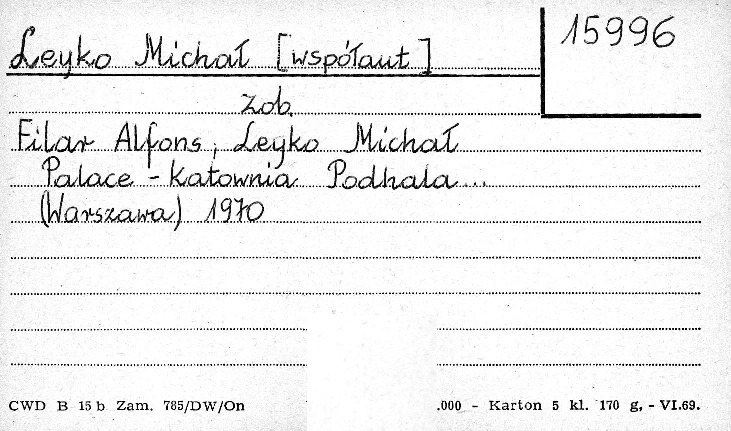 Leyko Michał [współaut]
15996
zob.
Filar Alfons, Leyko Michał
Palace - Katownia Podhala...
(Warszawa) 1970
CWD B 15 b Zam. 785/DW/On .000 - Karton 5 kl. 170 g, - VI.69.